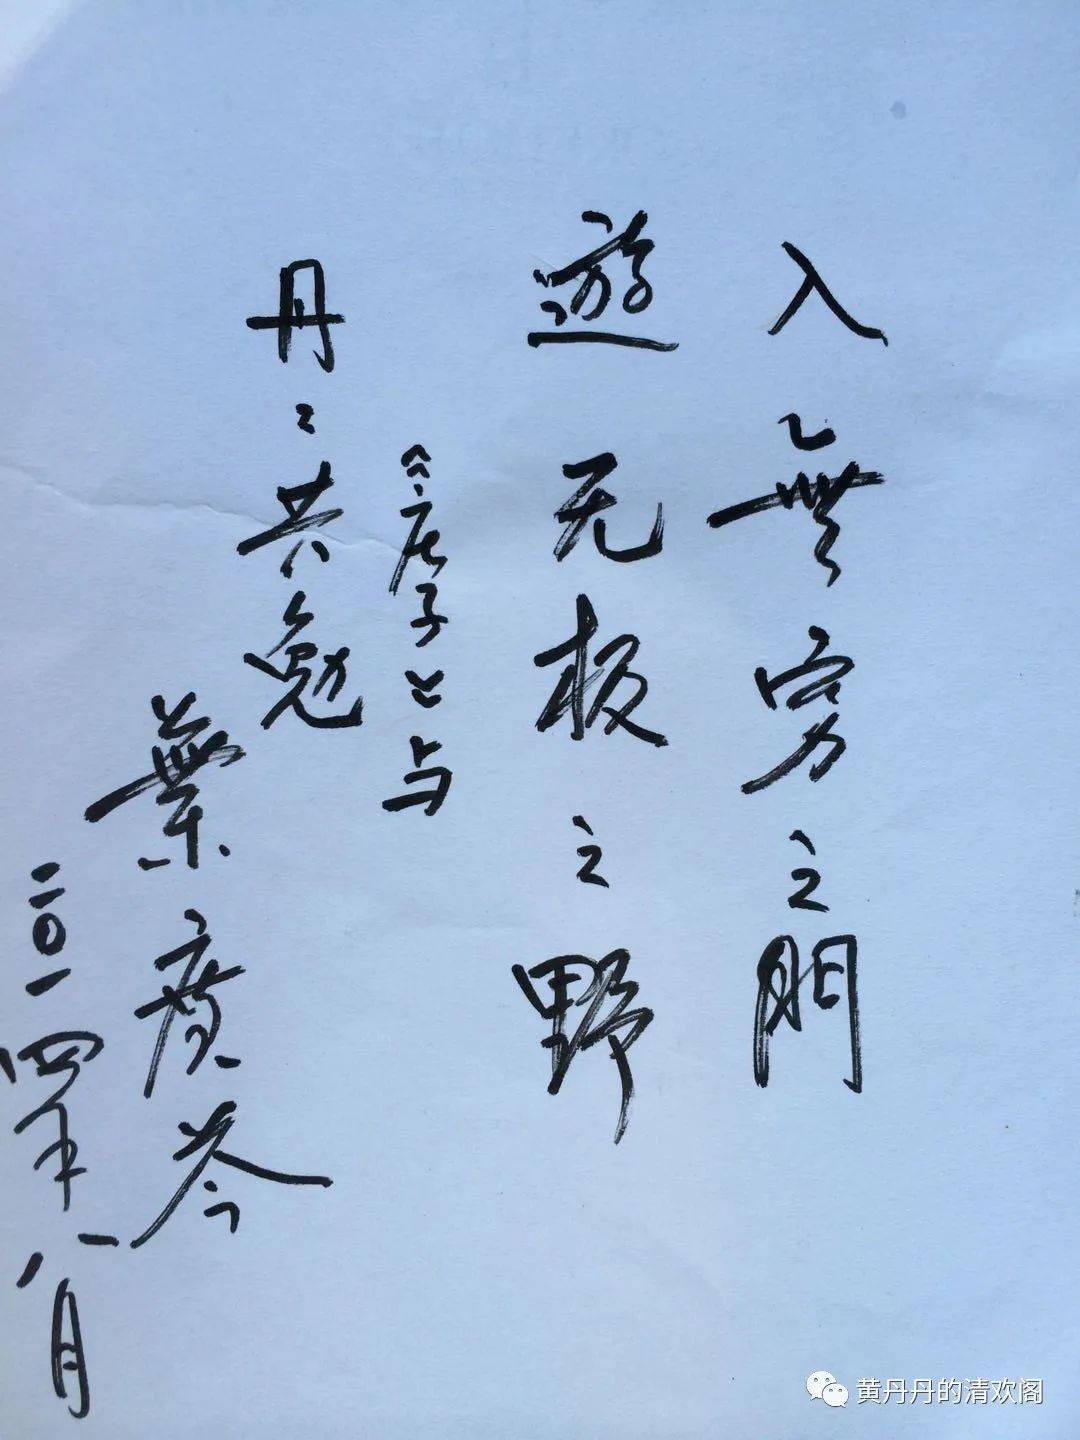 入無穷之門
遊无极之野
《庄子》与
丹〻共勉
葉廣芩
二〇一四年八月
黄丹丹的清欢阁